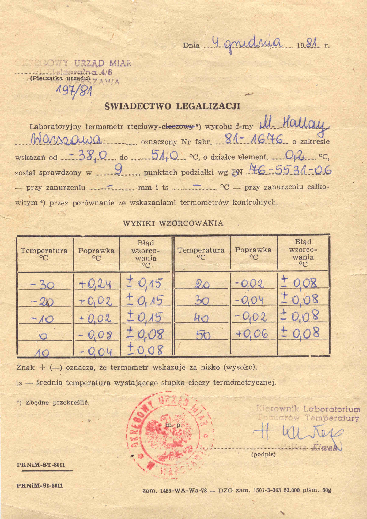 Dnia 4 grudnia 1981 r.
OKRĘGOWY URZĄD MIAR
(Pieczątka urzędu)
197/81
ŚWIADECTWO LEGALIZACJI
Laboratoryjny termometr rtęciowy-cieczowy*) wyrobu f-my M. Hallay
Warszawa oznaczony Nr fabr. 81-1676 o zakresie
wskazań od -38,0 do 51,0 °C, o działce element. 0,2 °C,
został sprawdzony w 9 punktach podziałki wg PN 76-5531-06
— przy zanurzeniu — mm i ts — °C — przy zanurzeniu całko-
witym *) przez porównanie ze wskazaniami termometrów kontrolnych.
WYNIKI WZORCOWANIA
Temperatura °C Poprawka °C Błąd wzorco-wania °C Temperatura °C Poprawka °C Błąd wzorco-wania °C
-30 +0,24 ± 0,15 20 -0,02 ± 0,08
-20 +0,02 ± 0,15 30 -0,04 ± 0,08
-10 +0,02 ± 0,15 40 -0,02 ± 0,08
0 -0,08 ± 0,08 50 +0,06 ± 0,08
10 -0,04 ± 0,08
Znak + (—) oznacza, że termometr wskazuje za nisko (wysoko).
ts — średnia temperatura wystającego słupka cieczy termometrycznej.
*) zbędne przekreślić.
Kierownik Laboratorium
Wzorców Temperatury
OKRĘGOWY URZĄD MIAR
(podpis)
PKNiM-ST-5011
PKNiM-St-5011